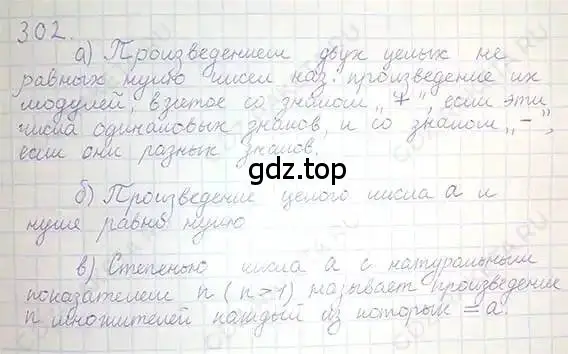 302.
а) Произведением двух целых не
равных нулю чисел наз. произведение их
модулей, взятое со знаком „+", если эти
числа одинаковых знаков, и со знаком „-",
если они разных знаков.
gdz.top
б) Произведение целого числа а и
нуля равно нулю
в) Степенью числа а с натуральным
показателем n (n>1) называет произведение
n множителей каждый из которых = а.